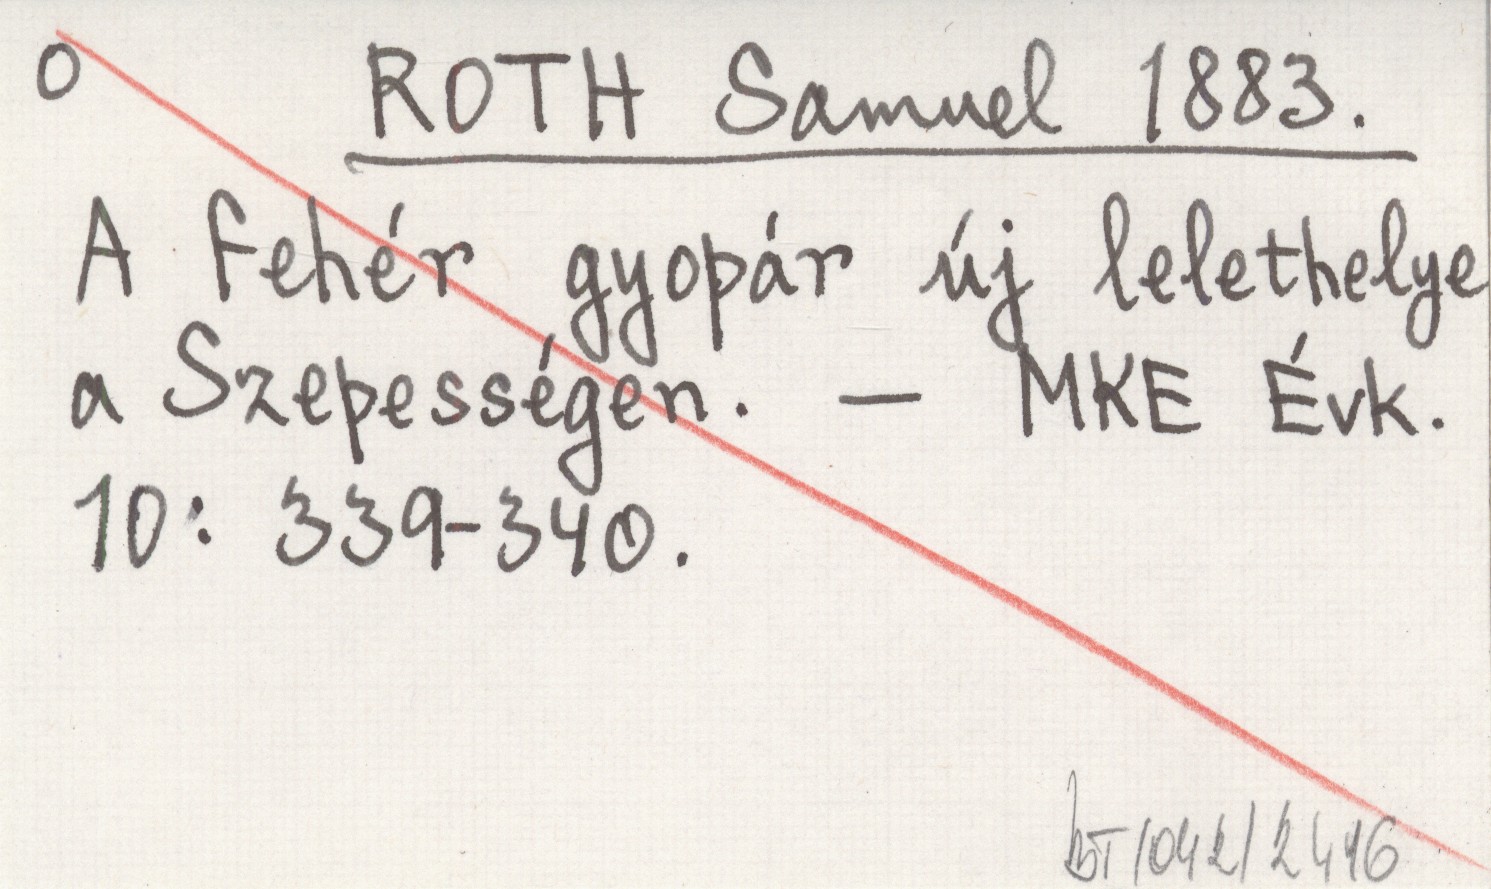 O
ROTH Samuel 1883.
A fehér gyopár új lelethelye
a Szepességen. — MKE Évk.
10: 339-340.
bT/042/2416